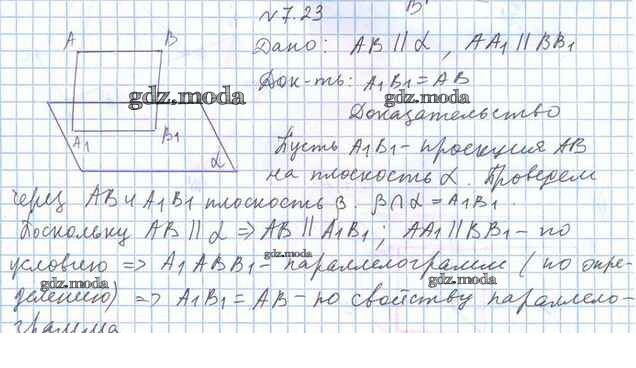 N 7.23
Дано: AB ∥ α, AA₁ ∥ BB₁
Док-ть: A₁B₁ = AB
Доказательство
Пусть A₁B₁ - проекция AB
на плоскость α. Проведем
через AB и A₁B₁ плоскость β. β∩α = A₁B₁.
Поскольку AB ∥ α ⇒ AB ∥ A₁B₁; AA₁ ∥ BB₁ - по
условию ⇒ A₁ABB₁ - параллелограмм (по опре-
делению) ⇒ A₁B₁ = AB - по свойству параллело-
грамма
A
B
A₁
B₁
α
gdz.moda
gdz.moda
gdz.moda
gdz.moda
gdz.moda